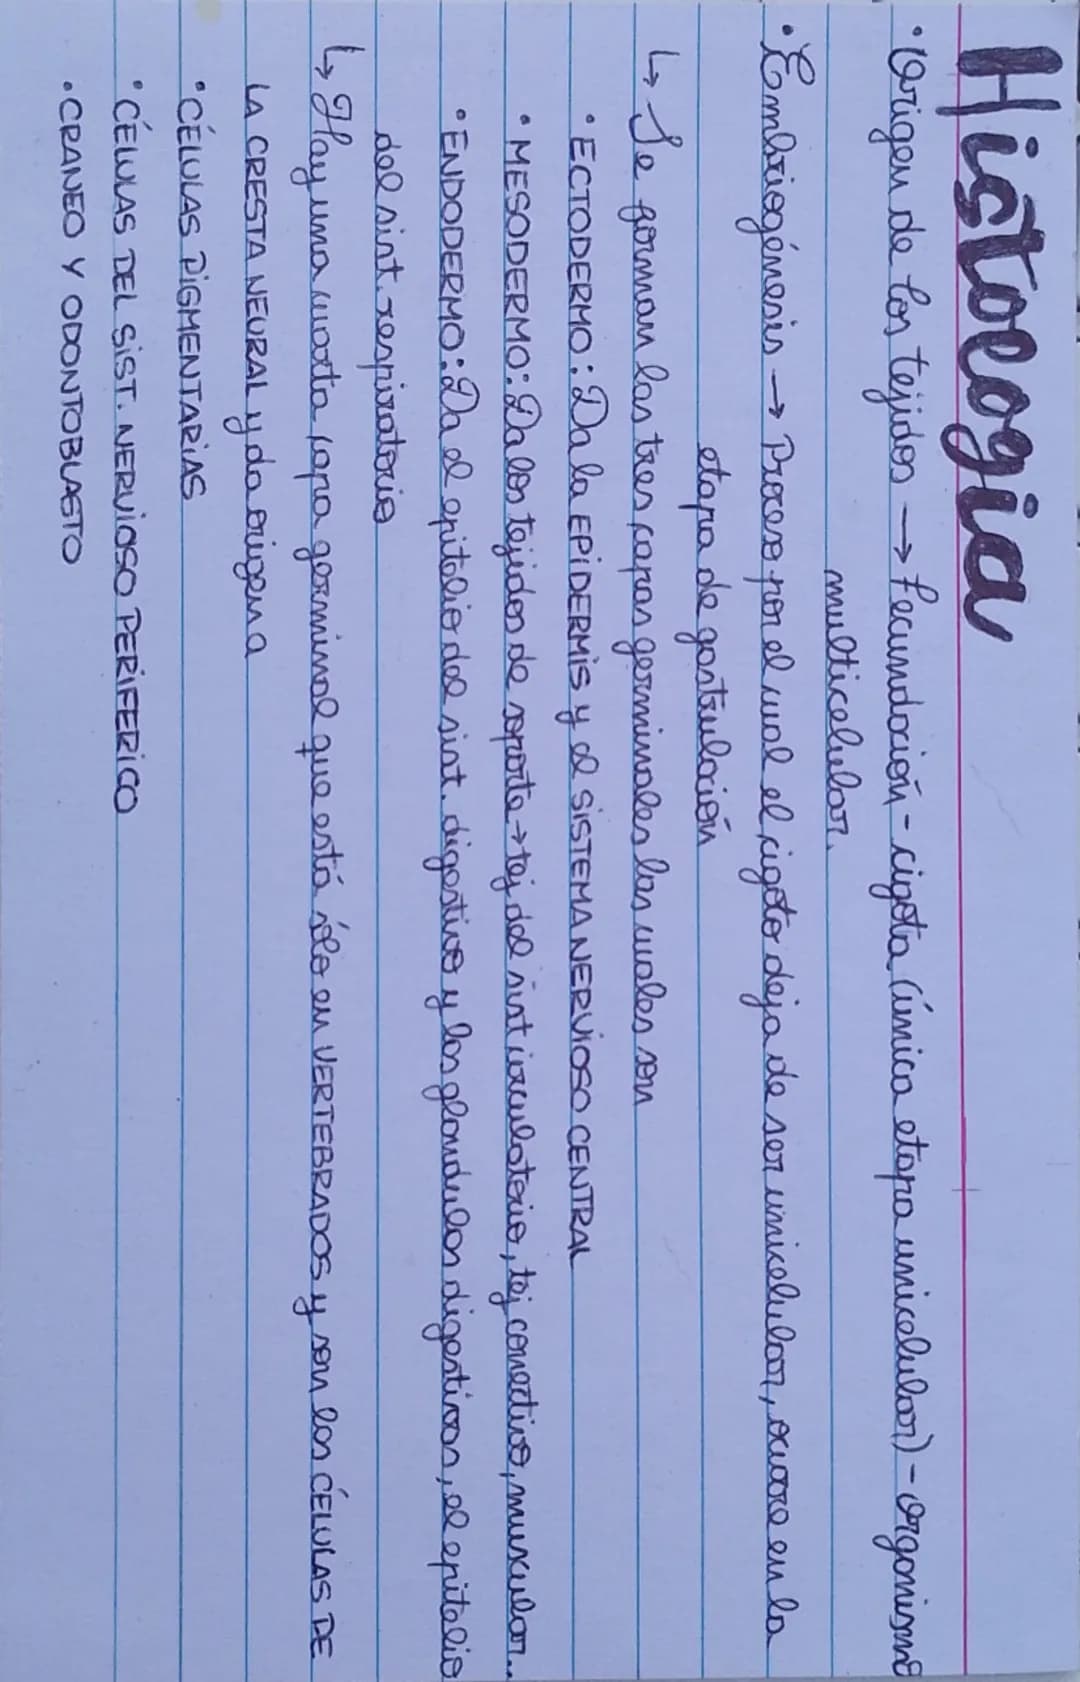 Histología
• Origen de los tejidos → Fecundación - cigota (única etapa unicelular) - organismo
multicelular.
• Embriogénesis → Proceso por el cual el cigoto deja de ser unicelular, ocurre en la
etapa de gastrulación
↳ Se forman las tres capas germinales las cuales son
• ECTODERMO: Da la EPIDERMIS y el SISTEMA NERVIOSO CENTRAL
• MESODERMO: Da los tejidos de soporte → tej del sist circulatorio, tej conectivo, muscular..
• ENDODERMO: Da el epitelio del sist. digestivo y las glandulas digestivas, el epitelio
del sist. respiratorio
↳ Hay una cuarta capa germinal que está sólo en VERTEBRADOS y son las CÉLULAS DE
LA CRESTA NEURAL y da origen a
• CÉLULAS PIGMENTARIAS
• CÉLULAS DEL SIST. NERVIOSO PERIFERICO
• CRANEO Y ODONTOBLASTO